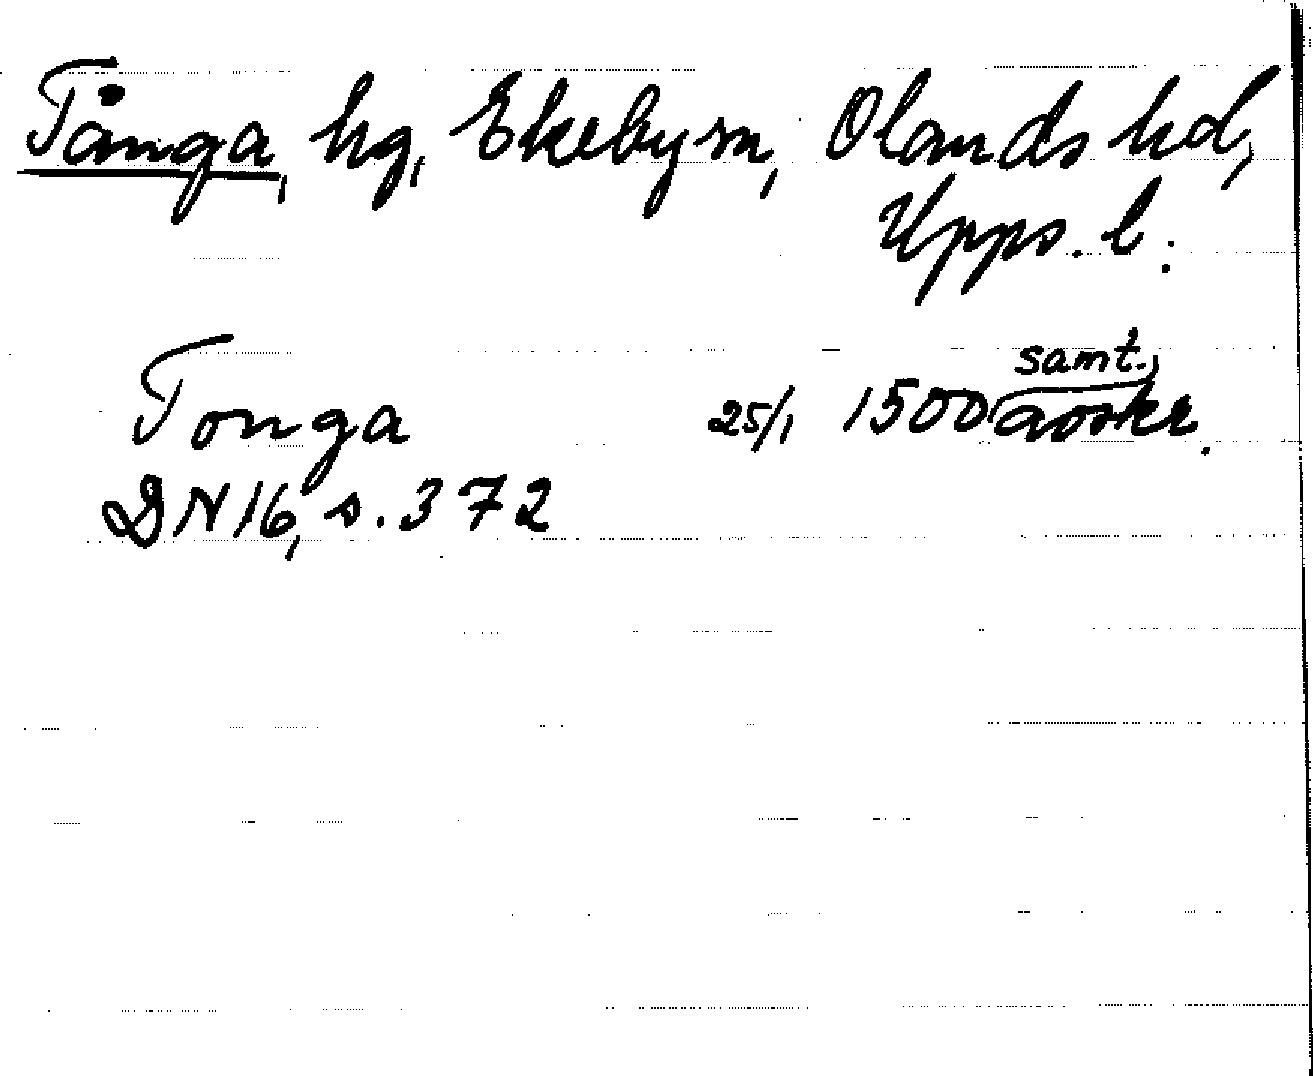 Tånga, hg, Ekeby sn, Olands hd,
Upps. l.
Tonga 25/1 1500 samt. avskr.
DN 16, s. 372